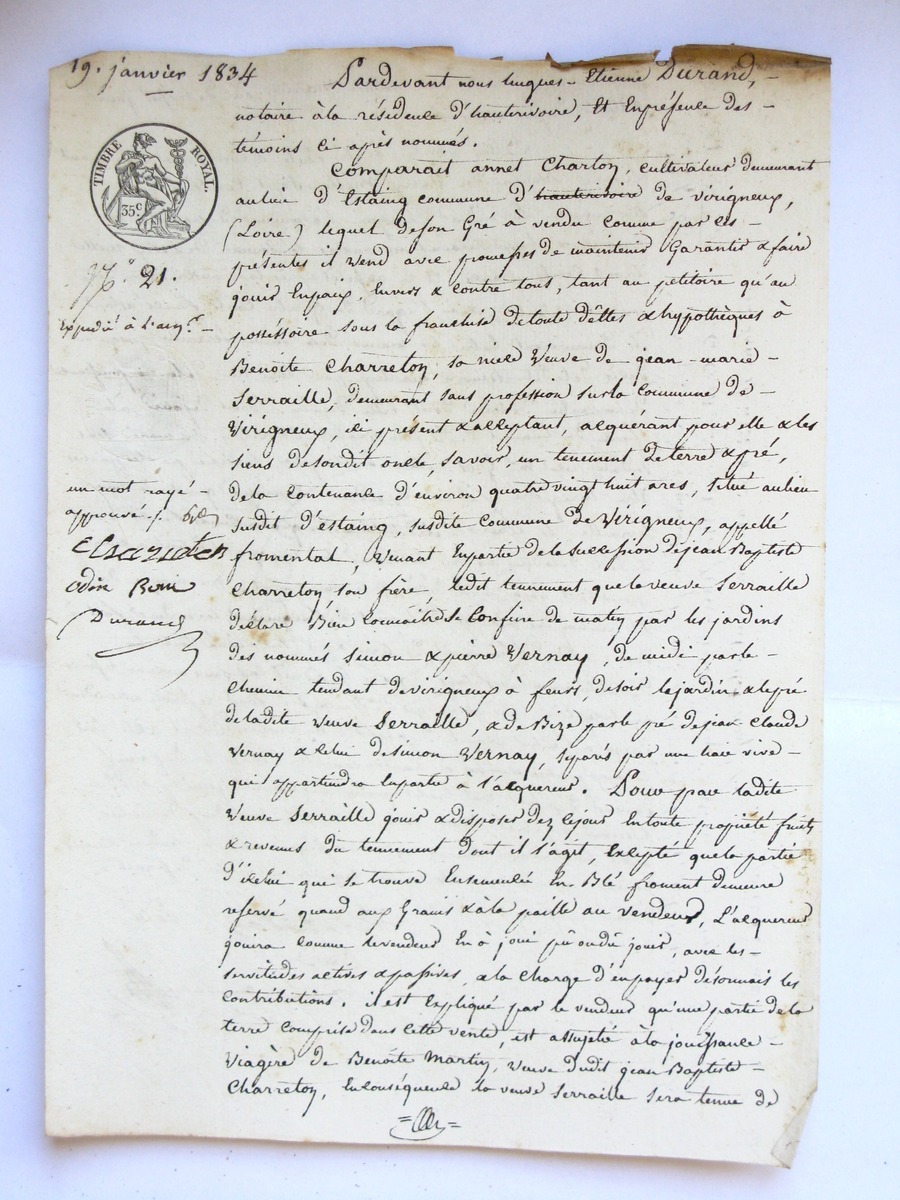 19. janvier 1834
TIMBRE ROYAL.
35c
N.° 21.
Expédié à l'acqr. -
un mot rayé -
approuvé ./.
Charreton
odin
Durand
Pardevant nous hugues - Etienne Durand, -
notaire à la résidence d'hauterivoire, Et Enprésence des -
témoins ci après nommés.
Comparait annet Charton, cultivateur demeurant
aulieu d'Estaing commune d'hauterivoire de virigneux,
(Loire) lequel deson Gré à vendu comme par ces -
présentes il vend avec promesses de maintenir Garantir & faire
jouir Enpaix, Envers & contre tous, tant au pétitoire qu'au
posséssoire sous la franchise detoute dêttes & hypothèques à
Benoite Charreton, sa nièce Veuve de jean - marie -
Serraille, demeurant sans profession sur la Commune de -
Virigneux, ici présent & acceptant, acquérant pour elle & les
siens desondit oncle, savoir, un tenement deterre & pré,
dela contenance d'environ quatre vingt huit ares, situé aulieu
susdit d'estaing, susdite Commune de Virigneux, appellé
fromental, venant Enpartie dela succession dejean Baptiste
Charreton son frère, ledit tennement que la veuve Serraille
déclare Bien Connaître se Confine de matin par les jardins
des nommés simon & pierre Vernay, de midi par le -
chemin tendant de virigneux à feurs, desoir lejardin & lepré
deladite veuve Serraille, & de Bize par le pré dejean Claude
Vernay & celui desimon Vernay, séparés par une haie vive -
qui appartiendra Enpartie à l'acquereur. Pour par ladite
Veuve Serraille jouir & disposer dez cejour Entoute propriété fruits
& revenus du tennement dont il s'agit, Excepté que la partie
d'icelui qui se trouve Ensemencée En Blé froment demeure
reservé quand aux Grains & à la paille au vendeur, L'acquereur
jouira comme levendeur En à joui pû oudû jouir, avec les -
servitudes actives & passives, a la charge d'enpayer désormais les
Contributions. il est Expliqué par le vendeur qu'une partie de la
terre Comprise dans cette vente, est assujetie à la jouissance -
Viagère de Benoite Martin, veuve dudit jean Baptiste -
Charreton, Enconséquence la veuve Serraille sera tenue de